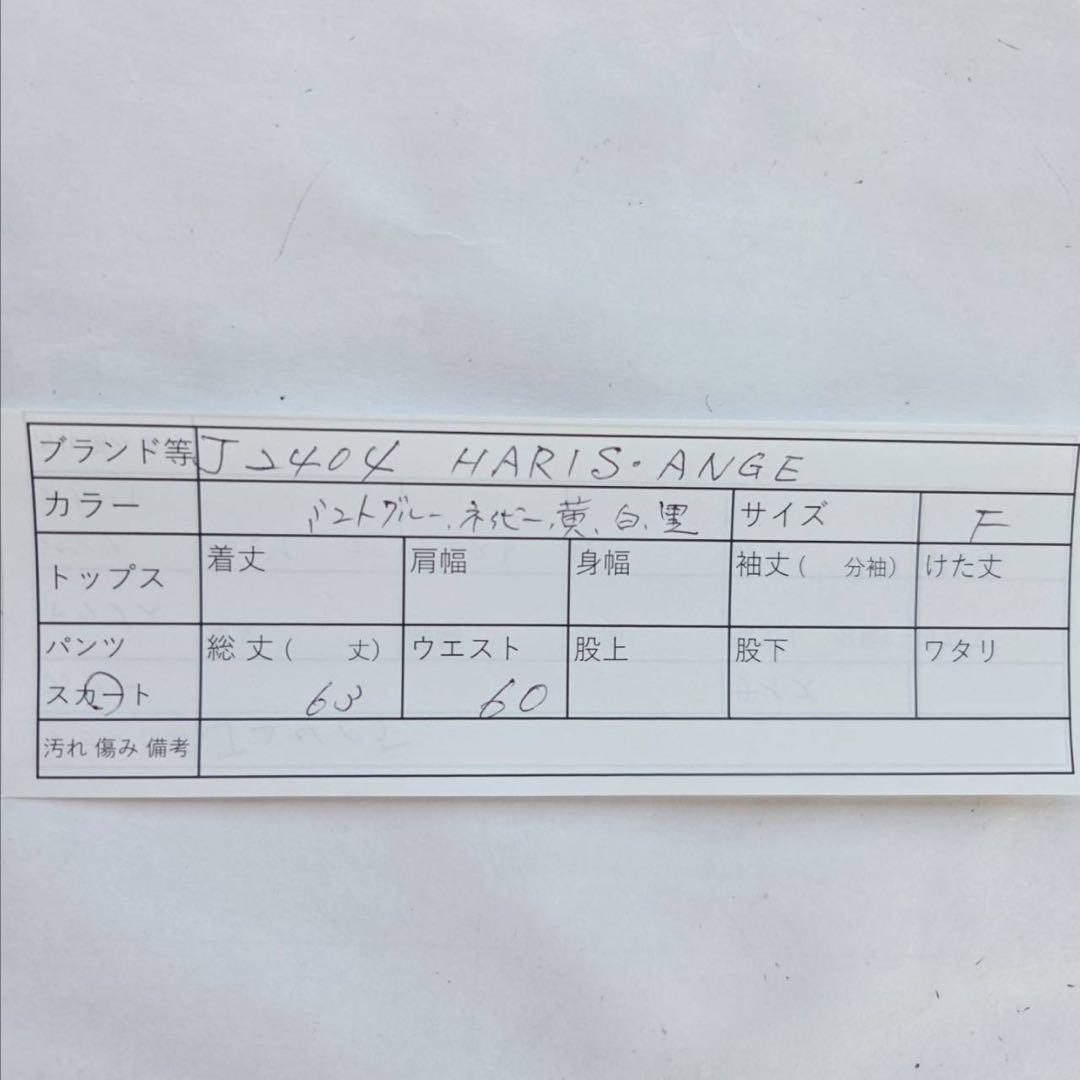 ブランド等 J2404 HARIS・ANGE
カラー ミントブルー、ネイビー、黄、白、黒 サイズ F
トップス 着丈 肩幅 身幅 袖丈( 分袖) けた丈
パンツ 総丈( 丈) ウエスト 股上 股下 ワタリ
スカート 63 60
汚れ 傷み 備考